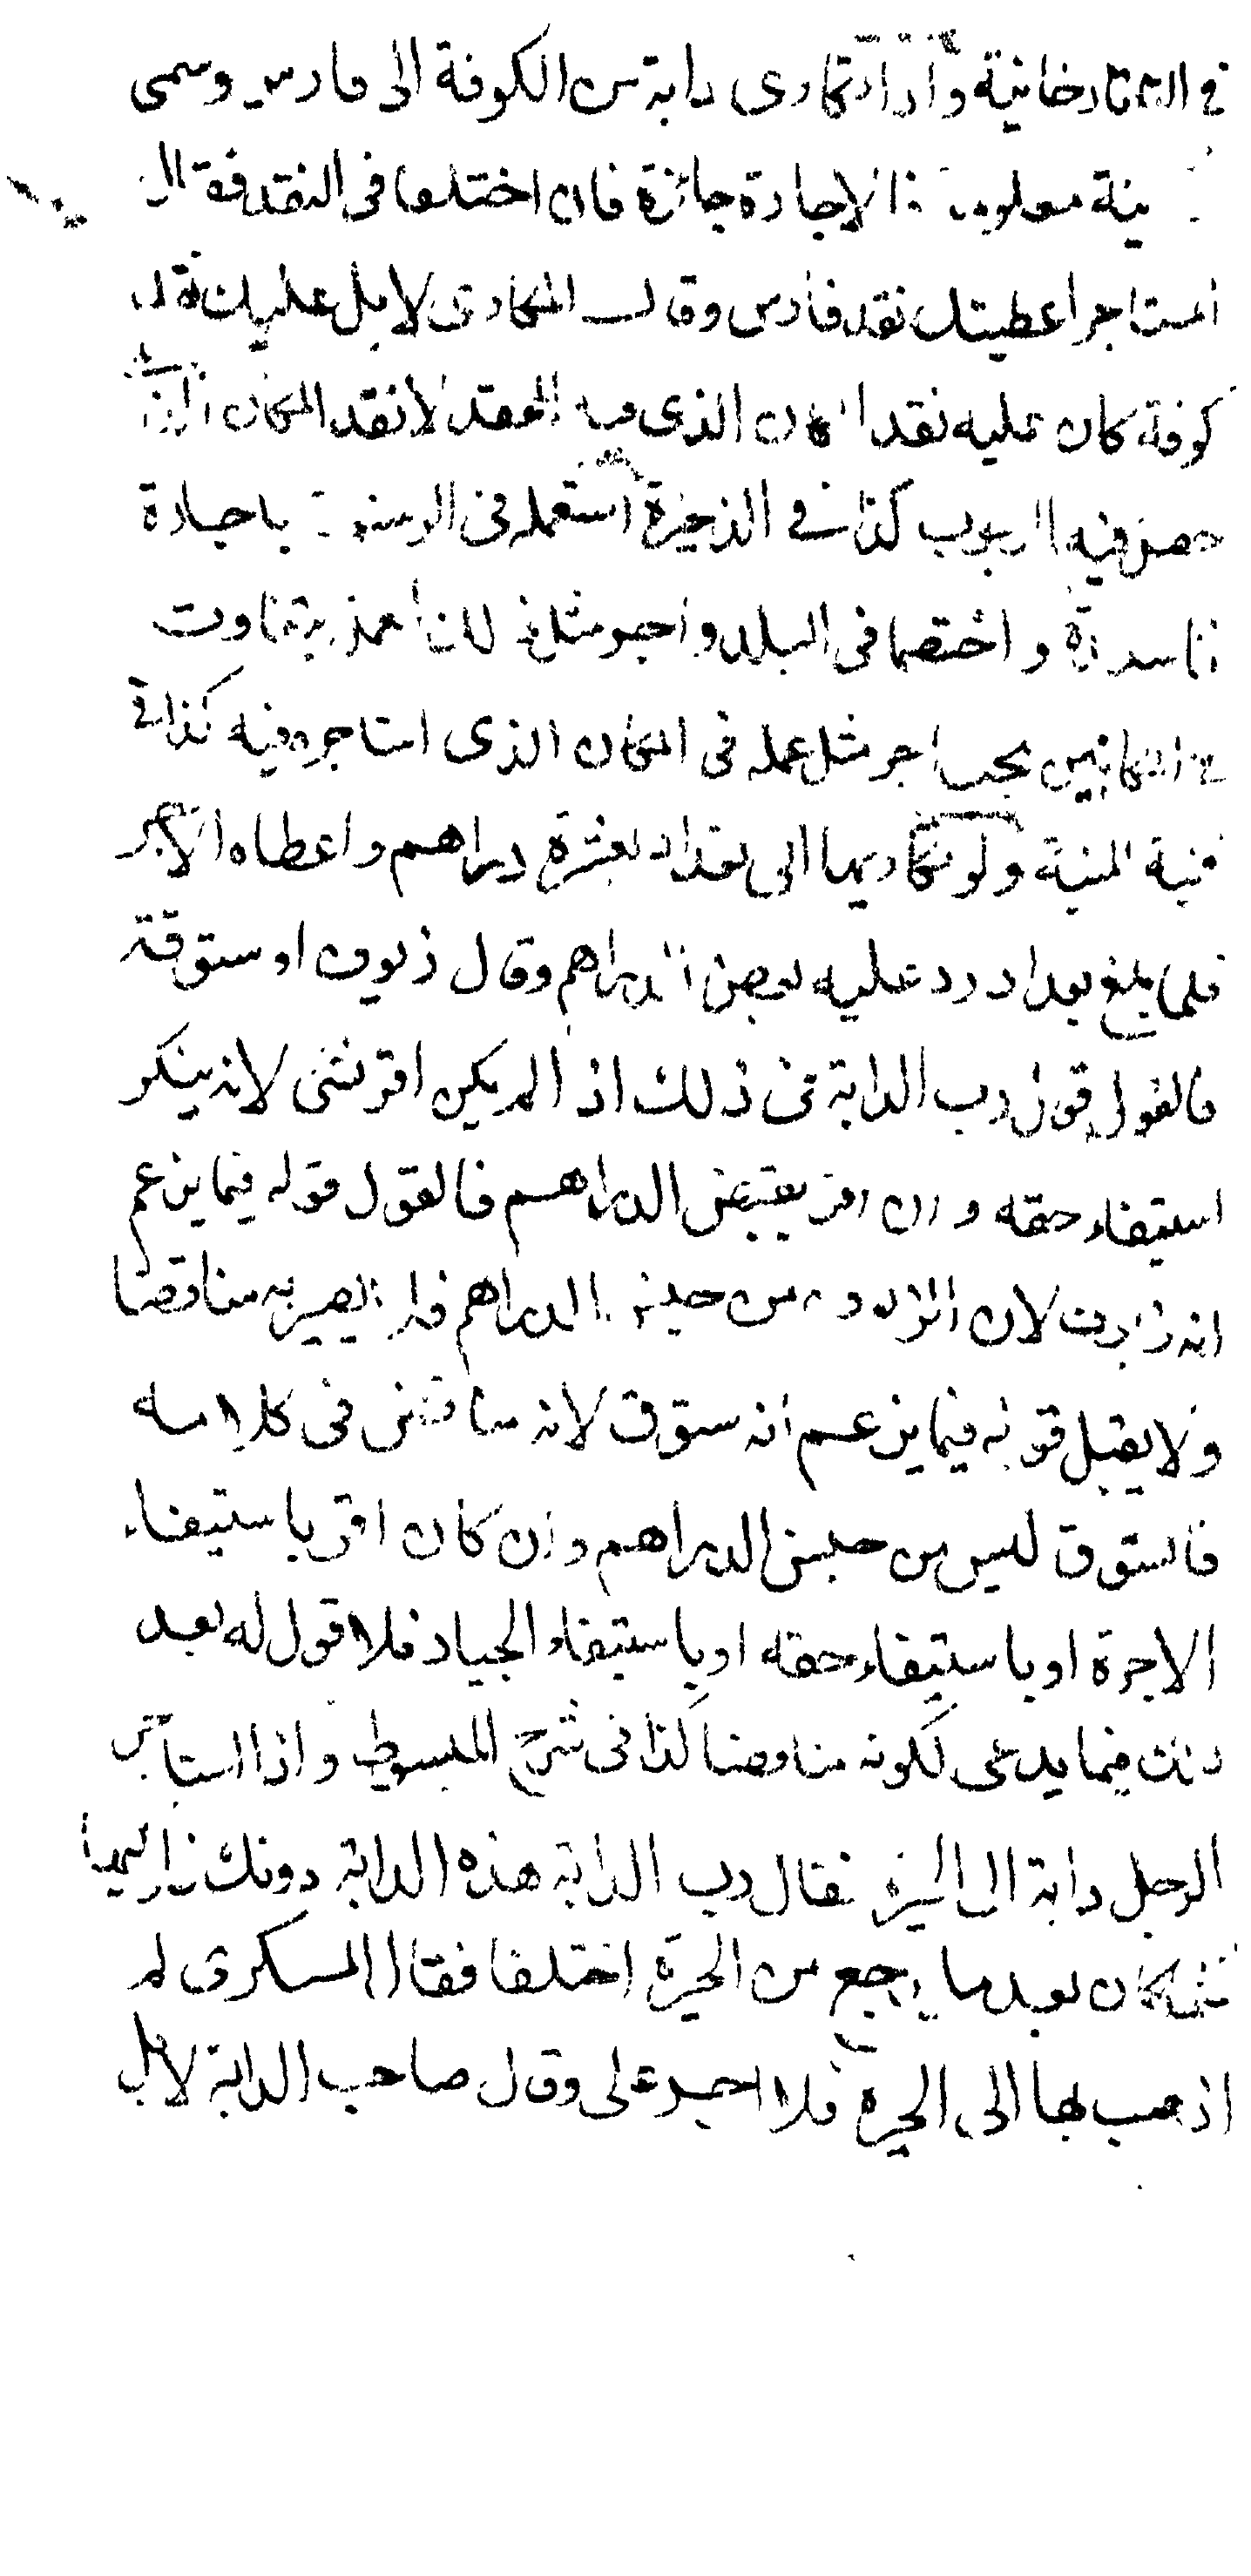 في التتارخانية واذا تكارى دابة من الكوفة الى فارس وسمى
معلومة فالاجارة جائزة فان اختلفا فى النقد فقال
المستاجر اعطيتك نقد فارس وقال المكارى لا بل عليك نقد
كوفة كان عليه نقد المكان الذى فيه العقد لا نقد المكان الذى
فيه الوجوب كذا في الذخيرة استعمله فى الرستاق باجارة
فاسدة واختصما فى البلد واجر مثله يتفاوت
في المكانين يجب اجر مثل عمله فى المكان الذى استاجره فيه كذا في
قنية المنية ولو تكاريها الى بغداد بعشرة دراهم واعطاه الاجر
فلما بلغ بغداد رد عليه بعض الدراهم وقال زيوف او ستوقة
فالقول قول رب الدابة فى ذلك اذا لم يكن اقر بشئ لانه ينكر
استيفاء حقه وان اقر بقبض الدراهم فالقول قوله فيما يزعم
انه زيوف لان الزيوف من جنس الدراهم فلا يصير به مناقضا
ولا يقبل قوله فيما يزعم انه ستوق لانه مناقض فى كلامه
فالستوق ليس من جنس الدراهم وان كان اقر باستيفاء
الاجرة او باستيفاء حقه او باستيفاء الجياد فلا قول له بعد
ذلك فيما يدعى لكونه مناقضا كذا فى شرح المبسوط واذا استأجر
الرجل دابة الى الحيرة فقال رب الدابة هذه الدابة دونك فاركبها
كان بعد ما رجع من الحيرة اختلفا فقال المستكرى لم
اذهب بها الى الحيرة فلا اجر على وقال صاحب الدابة لا بل